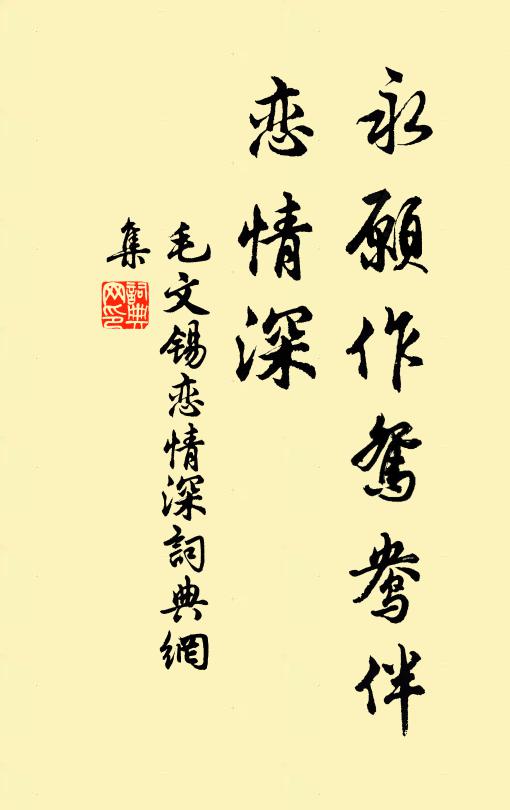 永願作鴛鴦伴
恋情深
毛文锡恋情深詞典網
集
詞典
网印